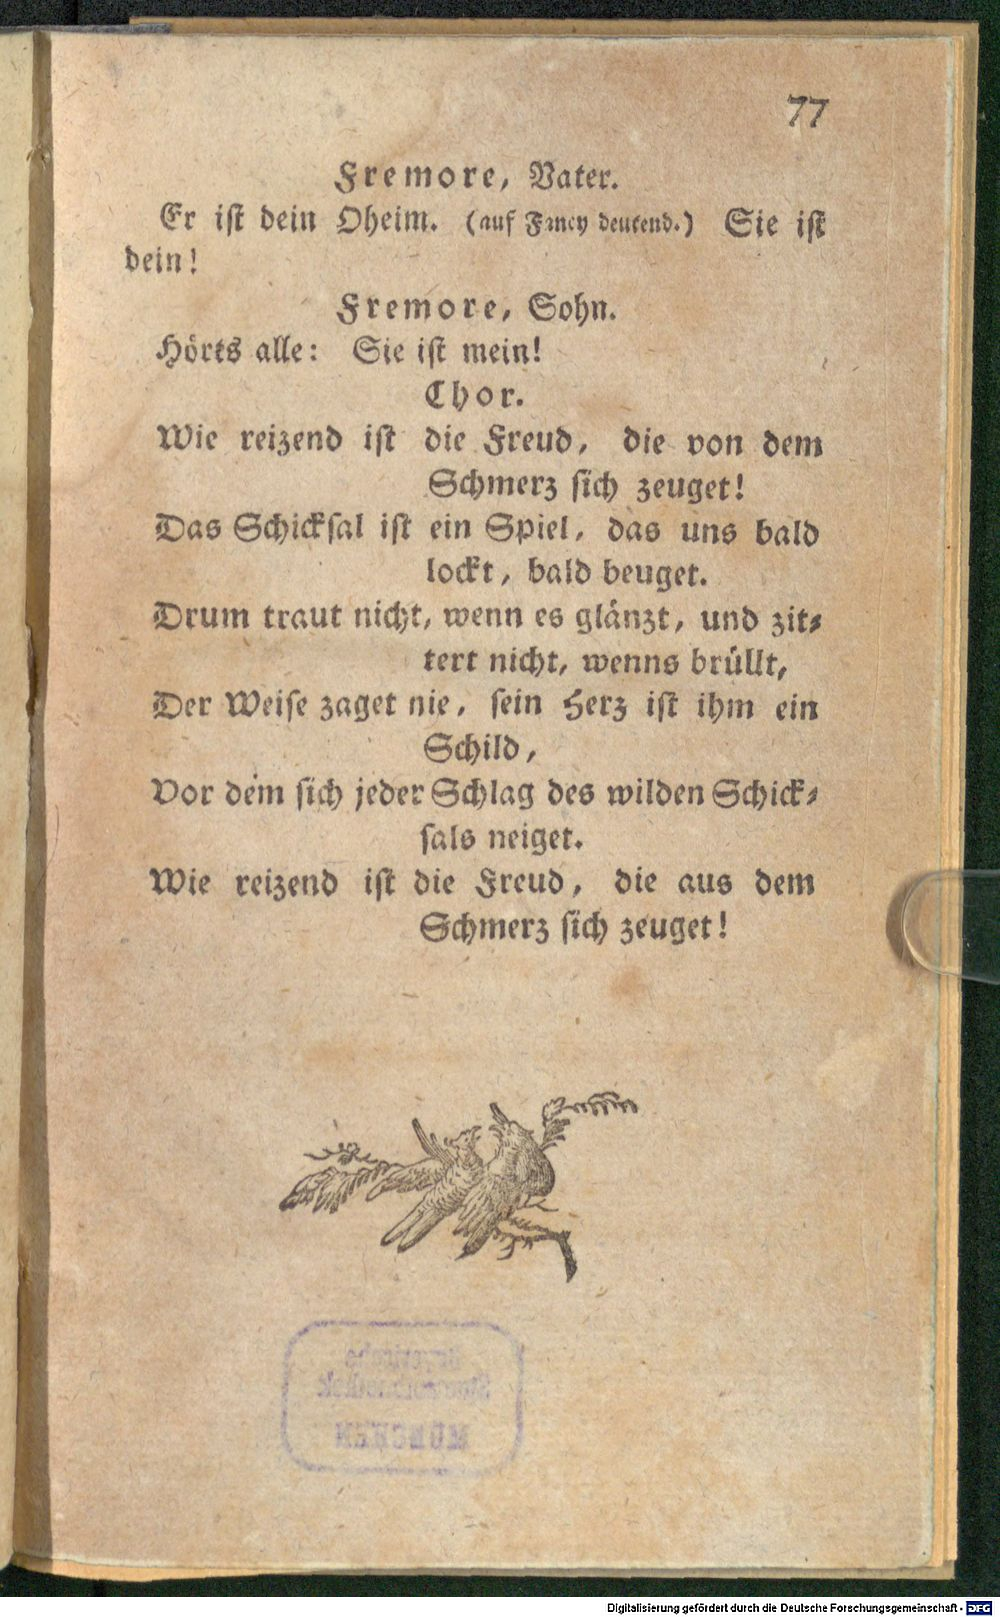 77
Fremore, Vater.
Er ist dein Oheim. (auf Fancy deutend.) Sie ist
dein!
Fremore, Sohn.
Hörts alle: Sie ist mein!
Chor.
Wie reizend ist die Freud, die von dem
Schmerz sich zeuget!
Das Schicksal ist ein Spiel, das uns bald
lockt, bald beuget.
Drum traut nicht, wenn es glänzt, und zit-
tert nicht, wenns brüllt,
Der Weise zaget nie, sein Herz ist ihm ein
Schild,
Vor dem sich jeder Schlag des wilden Schick-
sals neiget.
Wie reizend ist die Freud, die aus dem
Schmerz sich zeuget!
Bayerische
Staatsbibliothek
MÜNCHEN
Digitalisierung gefördert durch die Deutsche Forschungsgemeinschaft - DFG